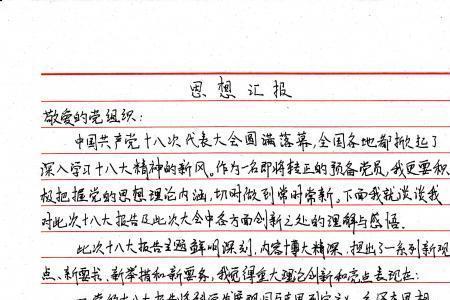 思想汇报
敬爱的党组织：
中国共产党十八次代表大会圆满落幕，全国各地都掀起了
深入学习十八大精神的新风。作为一名即将转正的预备党员，我更要积
极把握党的思想理论内涵，切时做到常时常新。下面我就谈谈我
对此次十八大报告及此次大会中各方面创新之处的理解与感悟。
此次十八大报告主题鲜明深刻，内容博大精深，提出了一系列新观
点、新要书、新举措和新要务，我觉得重大理论创新和亮点表现在：